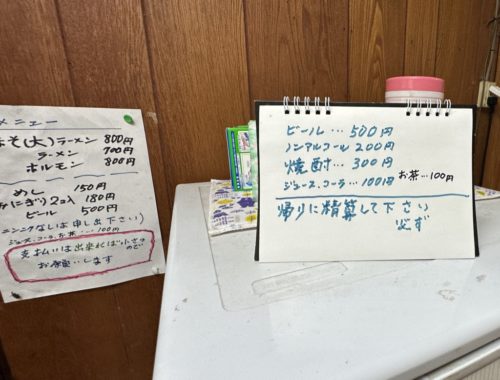 メニュー
みそ(大)ラーメン 800円
ラーメン 700円
ホルモン 800円
めし 150円
おにぎり2コ入 180円
ビール 500円
ニンニクなしは申し出下さい)
ジュース.コーラ.お茶…100円
支払いは出来れば小さいので
お願いします
ビール…500円
ノンアルコール200円
焼酎…300円
ジュース.コーラ…100円 お茶…100円
帰りに精算して下さい
必ず